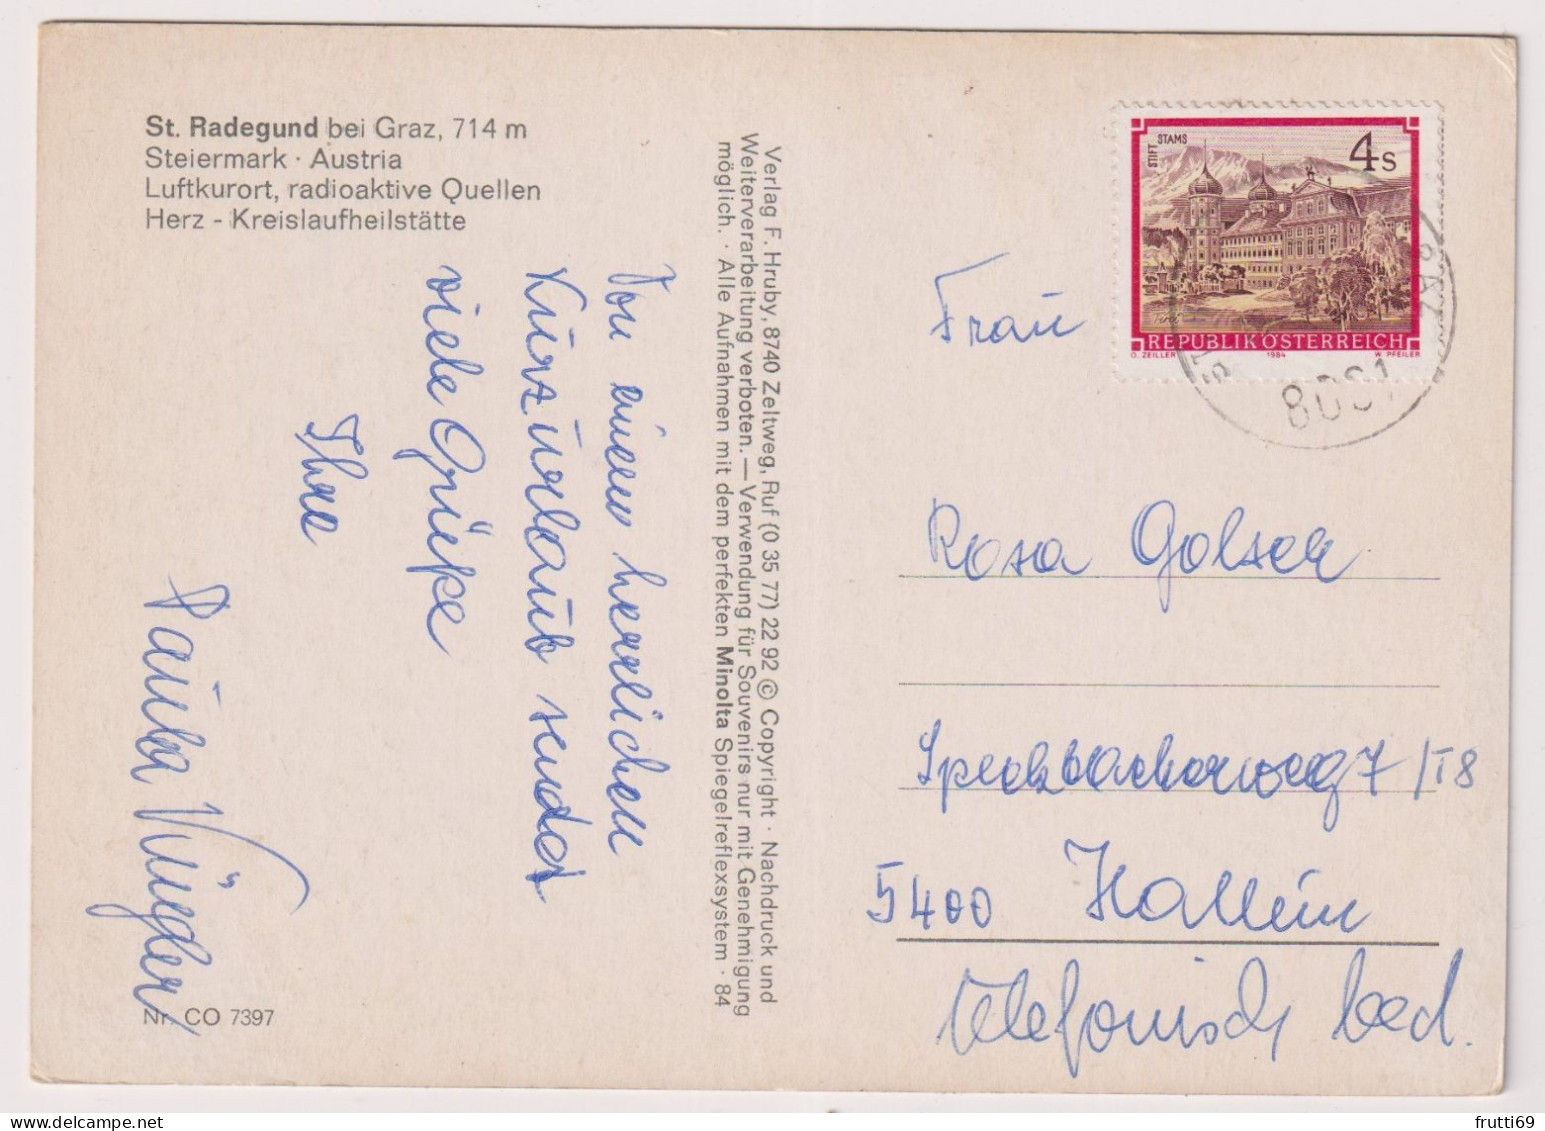 St. Radegund bei Graz, 714 m
Steiermark · Austria
Luftkurort, radioaktive Quellen
Herz - Kreislaufheilstätte
Von einem herrlichen
Kurzurlaub sendet
viele Grüße
Ihre
Paula Kügler
Nr. CO 7397
Verlag F. Hruby, 8740 Zeltweg, Ruf (0 35 77) 22 92 © Copyright · Nachdruck und
Weiterverarbeitung verboten. — Verwendung für Souvenirs nur mit Genehmigung
möglich. · Alle Aufnahmen mit dem perfekten Minolta Spiegelreflexsystem · 84
STIFT STAMS
4 S
REPUBLIK ÖSTERREICH
O. ZEILLER 1984 W. PFEILER
Frau
Rosa Golser
Speckbacherweg 7/18
5400 Hallein
frutti69